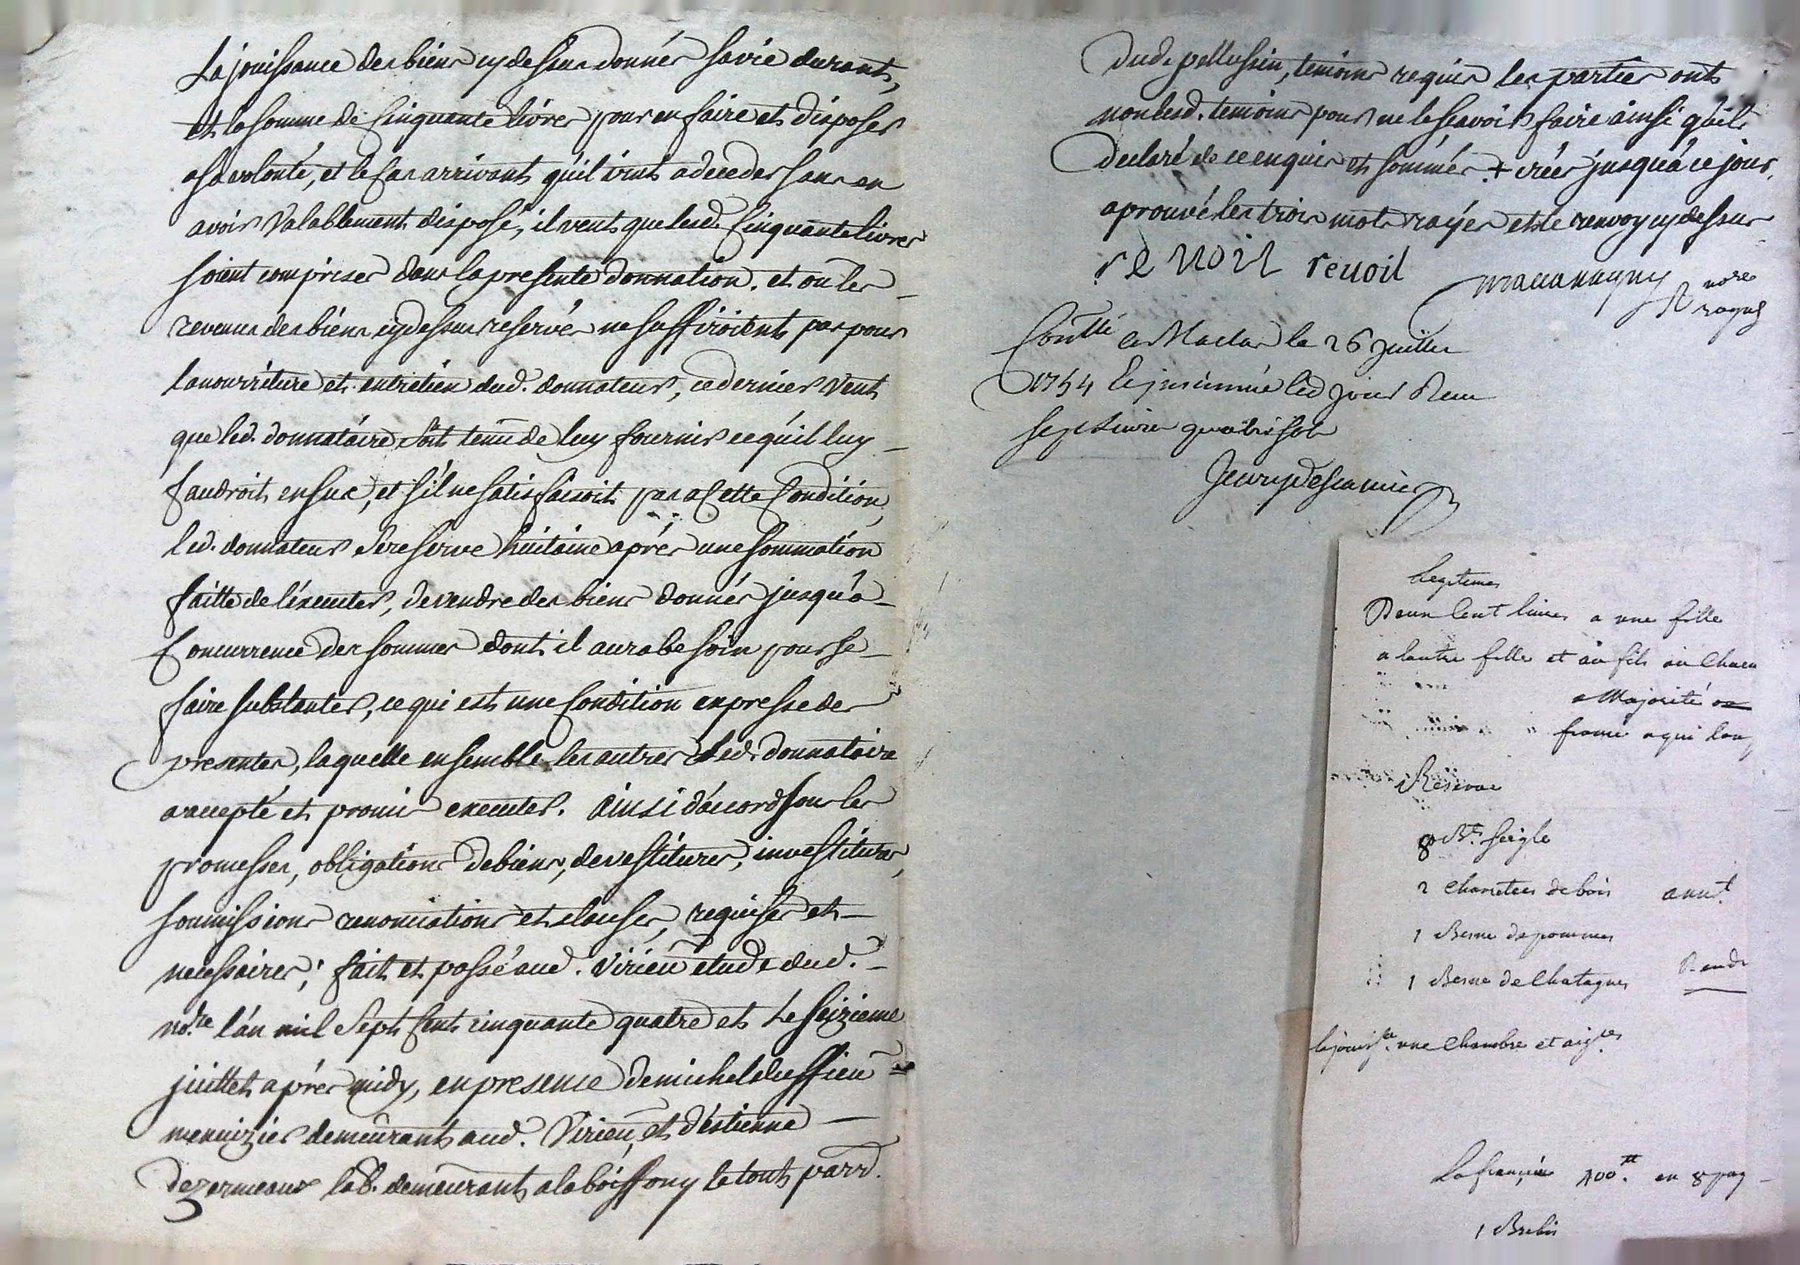 La jouissance des biens cy dessus donnés sa vie durant,
et la somme de Cinquante livres pour en faire et disposer
a sa volonté, et le Cas arrivant qu'il vint a deceder sans en
avoir valablement disposé, il veut que lesd. Cinquante livres
soient comprises dans la presente donnation. et ou les
revenus des biens cy dessus reservés ne suffiroient pas pour
la nourriture et entretien dud. donnateur, ce dernier veut
que led. donnataire soit tenu de luy fournir ce qu'il luy
faudroit en sus, et s'il ne satisfaisoit pas a Cette Condition,
led. donnateur se reserve huitaine aprés une sommation
faitte de l'executer, de vendre des biens donnés jusqu'a
Concurrence des sommes dont il aura besoin pour se
faire substanter, ce qui est une Condition expresse des
presentes, laquelle ensemble les autres led. donnataire
a accepté et promis executer. ainsi d'accord sous les
promesses, obligations de biens, devestitures, investitures,
soumissions renonciations et clauses, requises et
necessaires; fait et passé aud. Virieu etude dud.
no.re l'an mil sept Cent cinquante quatre et Le seizieme
juillet aprés midy, en presense de michel
menuizier demeurant aud. Virieu, et d'estienne
dezormeaux lab. demeurant a la boissony le tout parr.
dud. pellussin, temoins requis les parties ont
non lesd. temoins pour ne le sçavoir faire ainsi qu'ils
declaré de ce enquis et sommés + créés jusqu'a ce jour.
aprouvé les trois mots rayés et le renvoy cy dessus
revoil revoil
no.re
royal
Con.llé a Maclas le 26 juillet
1754 led jour Recu
sept Livres quatre sols
Legitimes
Deux Cent livres a une fille
a lautre fille et au fils au Chacun
a Majorité ou
Réserve
8 B.ts seigle
2 Charretées de bois annt.
1 Benne de pommes
1 Benne de Chatagnes
la jouis.ce une Chambre et
La francoise 100.tt en 8 pag
1 Brebis